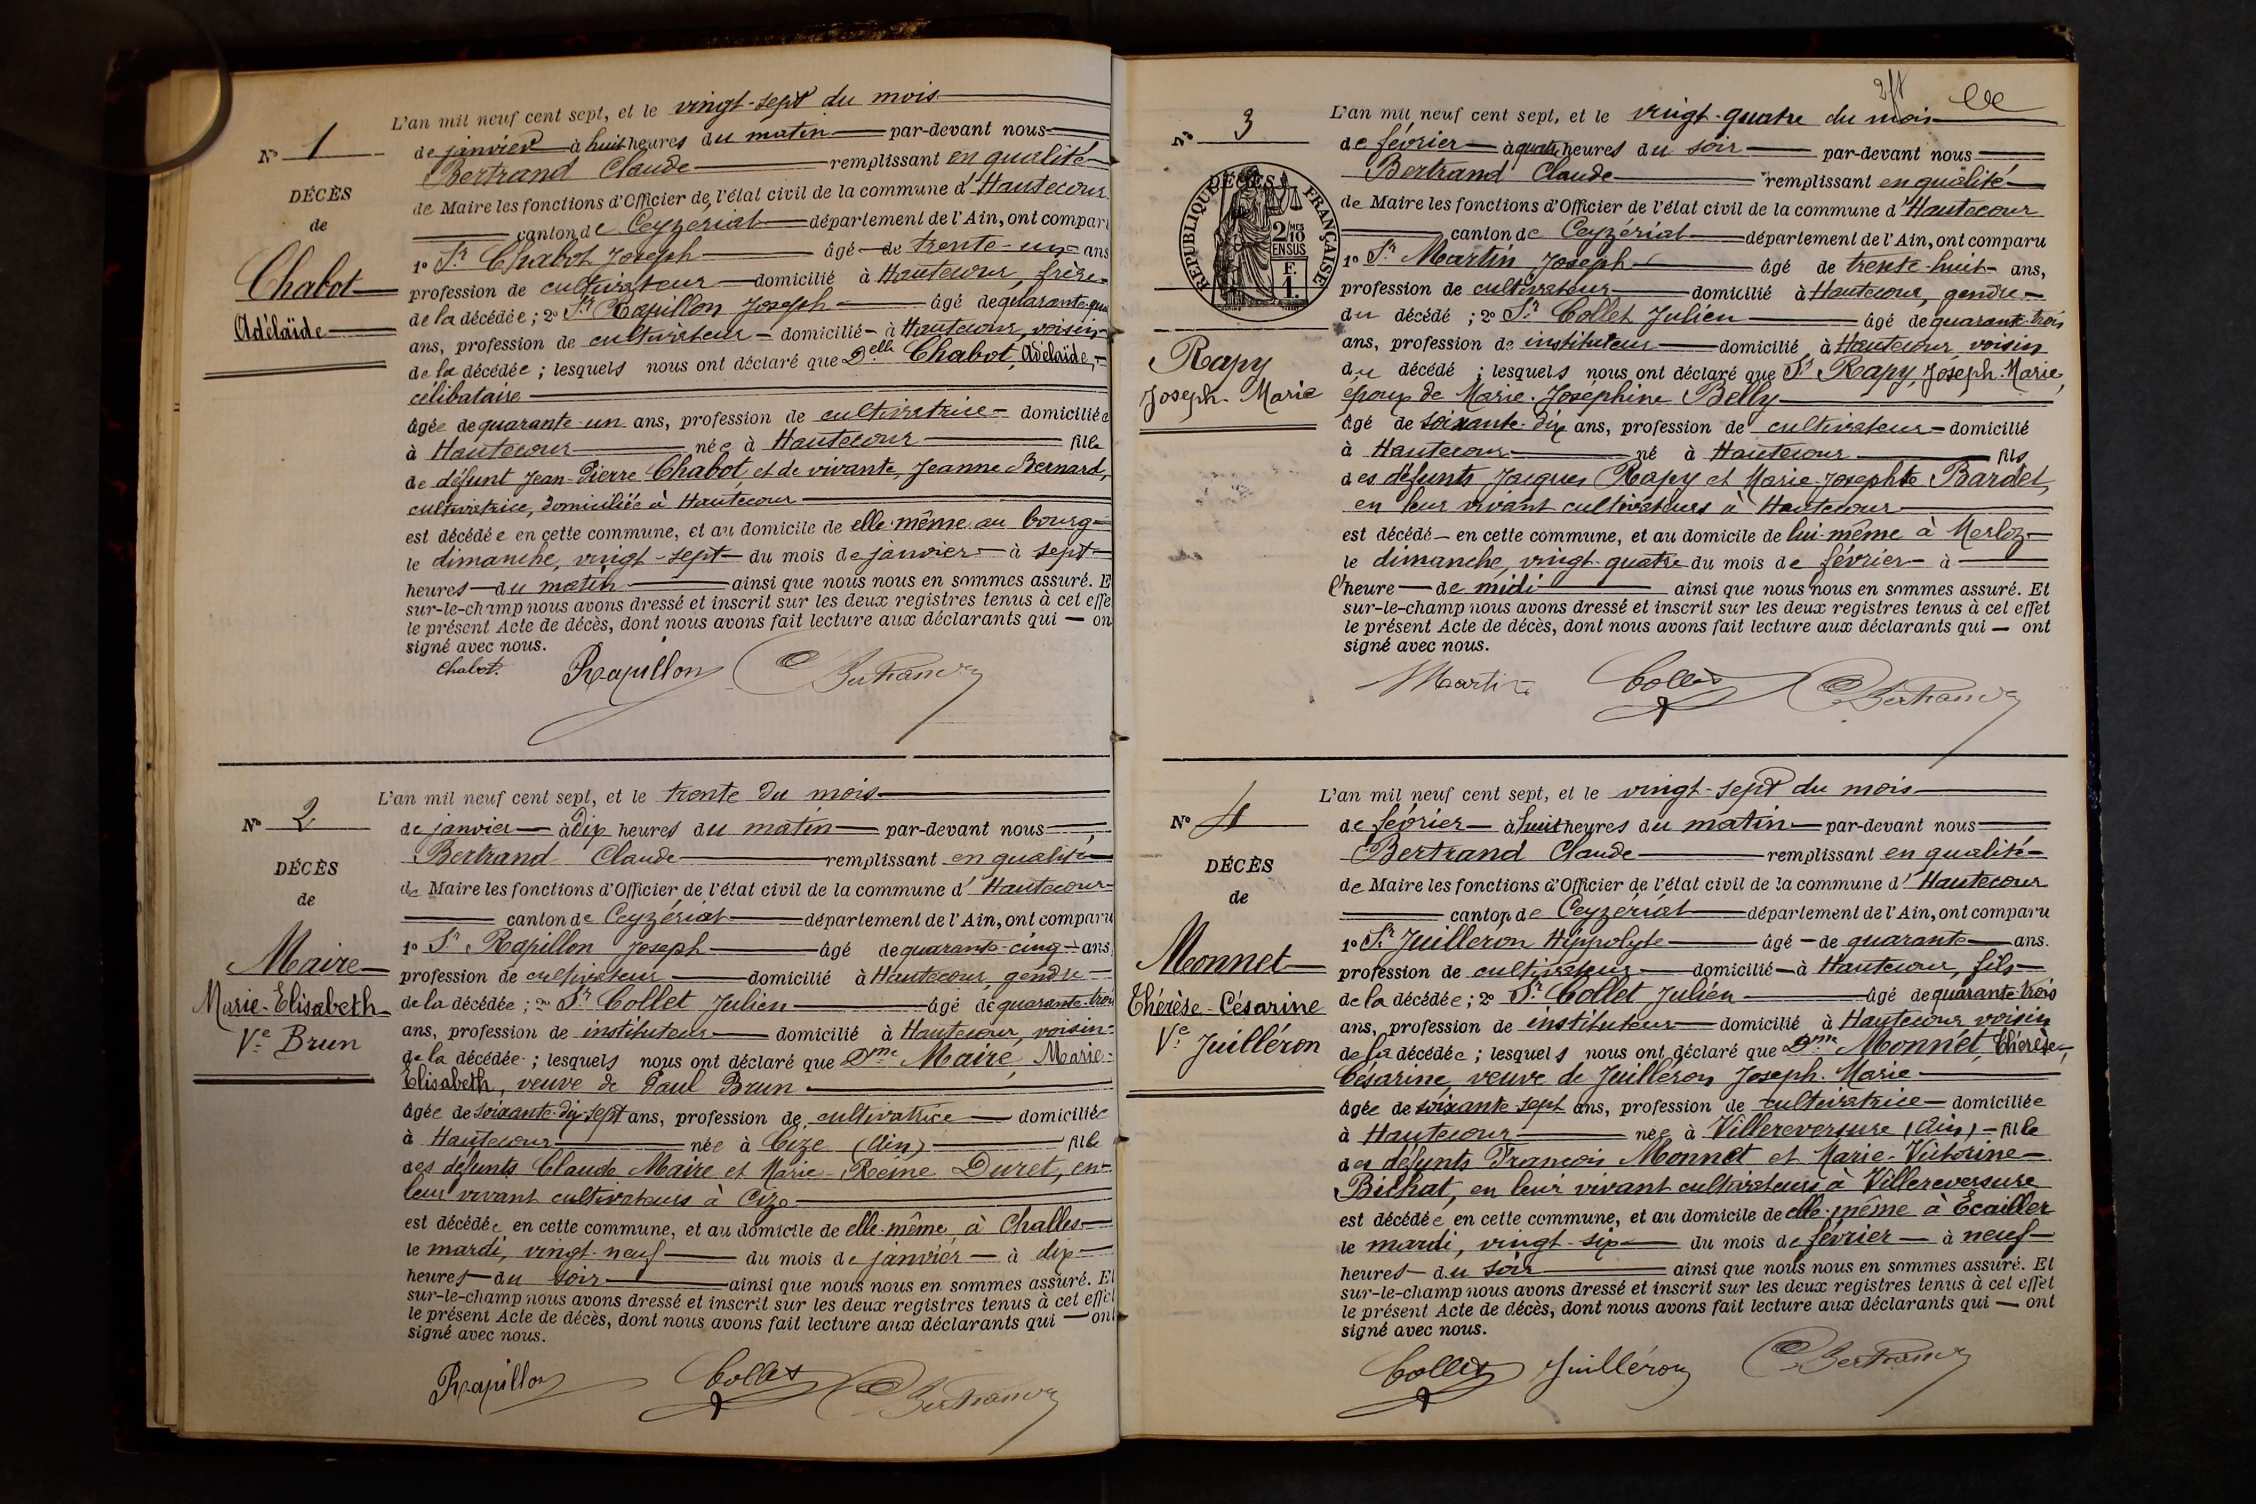 N° 1
DÉCÈS
de
Chabot
Adélaïde
L'an mil neuf cent sept, et le vingt-sept du mois
de janvier à huit heures du matin par-devant nous
Bertrand Claude remplissant en qualité
de Maire les fonctions d'Officier de l'état civil de la commune d'Hautecour
canton de Ceyzériat département de l'Ain, ont compar
1° Sr Chabot Joseph âgé de trente-un ans
profession de cultivateur domicilié à Hautecour, frère
de la décédée; 2° Sr Rapillon Joseph âgé de quarante-
ans, profession de cultivateur domicilié à Hautecour, voisin
de la décédée; lesquels nous ont déclaré que Delle Chabot, Adélaïde,
célibataire
âgée de quarante-un ans, profession de cultivatrice domiciliée
à Hautecour née à Hautecour fille
de défunt Jean-Pierre Chabot et de vivante, Jeanne Bernard,
cultivatrice, domiciliée à Hautecour
est décédée en cette commune, et au domicile de elle-même au bourg
le dimanche, vingt-sept du mois de janvier à sept
heures du matin ainsi que nous nous en sommes assuré. E
sur-le-champ nous avons dressé et inscrit sur les deux registres tenus à cet effe
le présent Acte de décès, dont nous avons fait lecture aux déclarants qui on
signé avec nous.
Chabot. Rapillon C Bertrand
N° 2
DÉCÈS
de
Maire
Marie-Elisabeth
Ve Brun
L'an mil neuf cent sept, et le trente du mois
de janvier à dix heures du matin par-devant nous
Bertrand Claude remplissant en qualité
de Maire les fonctions d'Officier de l'état civil de la commune d'Hautecour
canton de Ceyzériat département de l'Ain, ont comparu
1° Sr Rapillon Joseph âgé de quarante-cinq ans
profession de cultivateur domicilié à Hautecour, gendre
de la décédée; 2° Sr Collet Julien âgé de quarante-trois
ans, profession de instituteur domicilié à Hautecour, voisin
de la décédée; lesquels nous ont déclaré que Dme Maire, Marie-
Elisabeth, veuve de Paul Brun
âgée de soixante-dix-sept ans, profession de cultivatrice domiciliée
à Hautecour née à Cize (Ain) fille
des défunts Claude Maire et Marie-Reine Duret, en
leur vivant cultivateurs à Cize
est décédée en cette commune, et au domicile de elle-même, à Challes
le mardi, vingt-neuf du mois de janvier à dix
heures du soir ainsi que nous nous en sommes assuré. Et
sur-le-champ nous avons dressé et inscrit sur les deux registres tenus à cet effet
le présent Acte de décès, dont nous avons fait lecture aux déclarants qui ont
signé avec nous.
Rapillon Collet C Bertrand
N° 3
RÉPUBLIQUE FRANÇAISE
2/10
EN SUS
F.
1.
DÉCÈS
Rapy
Joseph-Marie
L'an mil neuf cent sept, et le vingt-quatre du mois
de février à quatre heures du soir par-devant nous
Bertrand Claude remplissant en qualité
de Maire les fonctions d'Officier de l'état civil de la commune d'Hautecour
canton de Ceyzériat département de l'Ain, ont comparu
1° Sr Martin Joseph âgé de trente-huit ans,
profession de cultivateur domicilié à Hautecour, gendre
du décédé; 2° Sr Collet Julien âgé de quarante-trois
ans, profession de instituteur domicilié à Hautecour voisin
du décédé; lesquels nous ont déclaré que Sr Rapy, Joseph-Marie,
époux de Marie-Joséphine Belly
âgé de soixante-dix ans, profession de cultivateur domicilié
à Hautecour né à Hautecour fils
des défunts Jacques Rapy et Marie-Josephte Bardet,
en leur vivant cultivateurs à Hautecour
est décédé en cette commune, et au domicile de lui-même à Merloz
le dimanche, vingt-quatre du mois de février à
l'heure de midi ainsi que nous nous en sommes assuré. Et
sur-le-champ nous avons dressé et inscrit sur les deux registres tenus à cet effet
le présent Acte de décès, dont nous avons fait lecture aux déclarants qui ont
signé avec nous.
Martin Collet C Bertrand
N° 4
DÉCÈS
de
Monnet
Thérèse-Césarine
Ve Juilléron
L'an mil neuf cent sept, et le vingt-sept du mois
de février à huit heures du matin par-devant nous
Bertrand Claude remplissant en qualité
de Maire les fonctions d'Officier de l'état civil de la commune d'Hautecour
canton de Ceyzériat département de l'Ain, ont comparu
1° Sr Juilléron Hippolyte âgé de quarante ans.
profession de cultivateur domicilié à Hautecour, fils
de la décédée; 2° Sr Collet Julien âgé de quarante-trois
ans, profession de instituteur domicilié à Hautecour voisin
de la décédée; lesquels nous ont déclaré que Dme Monnet, Thérèse-
Césarine, veuve de Juilléron Joseph-Marie
âgée de soixante-sept ans, profession de cultivatrice domiciliée
à Hautecour née à Villereversure (Ain) fille
des défunts François Monnet et Marie-Victorine
Bichat, en leur vivant cultivateurs à Villereversure
est décédée en cette commune, et au domicile de elle-même à Ecailler
le mardi, vingt-six du mois de février à neuf
heures du soir ainsi que nous nous en sommes assuré. Et
sur-le-champ nous avons dressé et inscrit sur les deux registres tenus à cet effet
le présent Acte de décès, dont nous avons fait lecture aux déclarants qui ont
signé avec nous.
Collet Juilléron C Bertrand